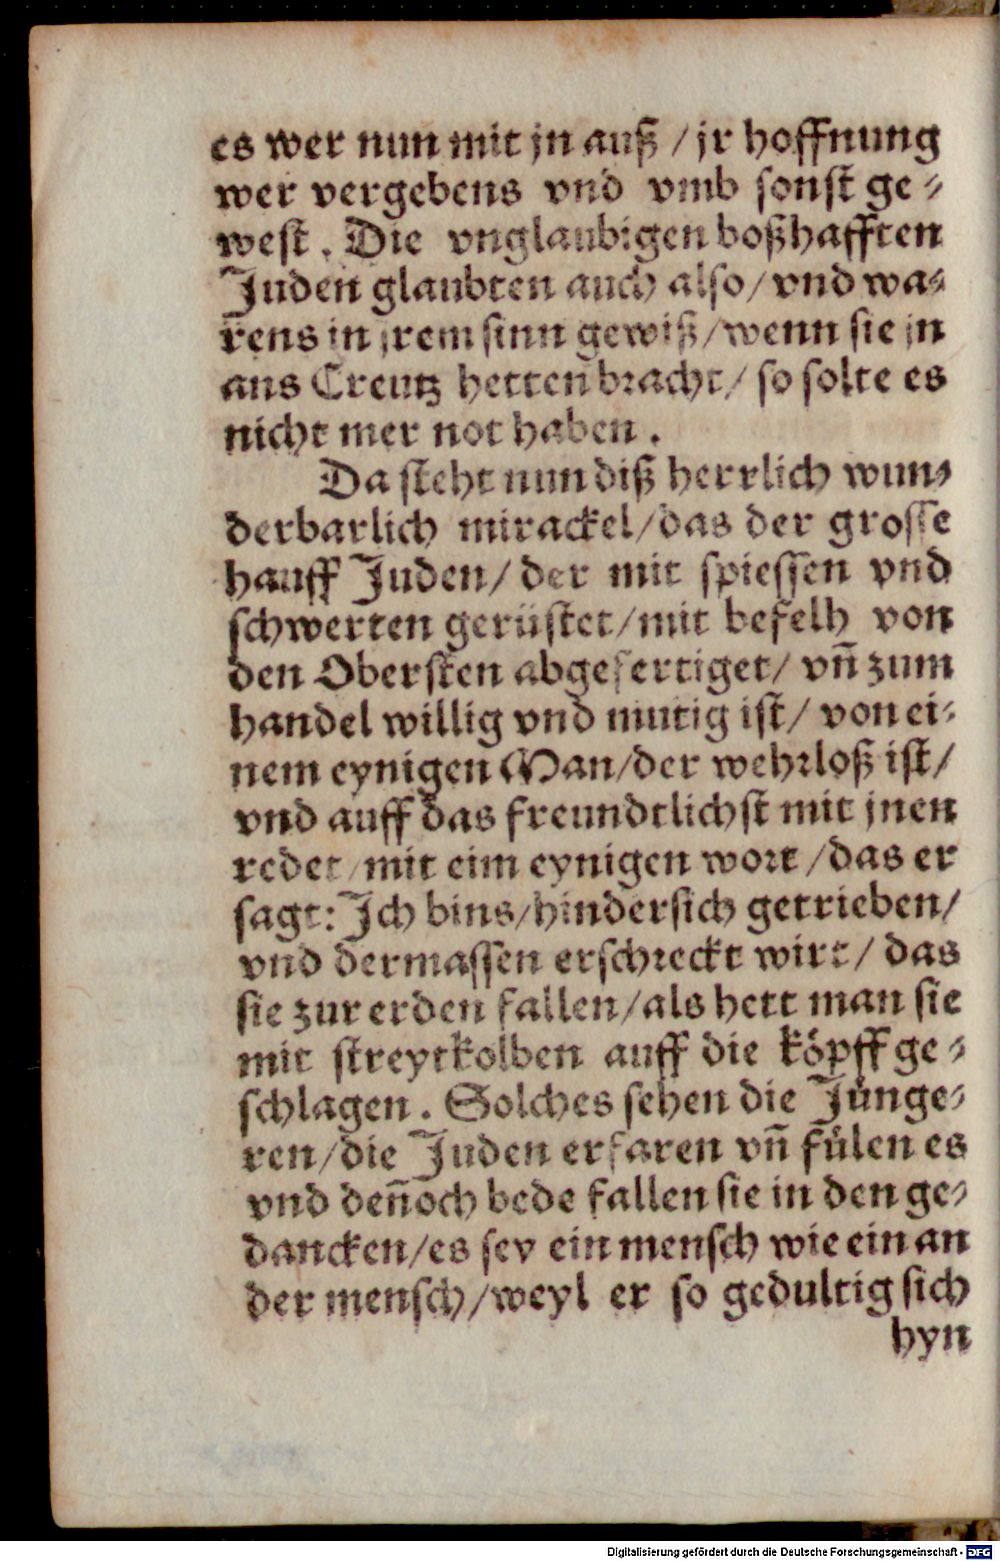 es wer nun mit jn auß / jr hoffnung
wer vergebens vnd vmb sonst ge⸗
west. Die vnglaubigen boßhafften
Juden glaubten auch also / vnd wa⸗
rens in jrem sinn gewiß / wenn sie jn
ans Creutz hetten bracht / so solte es
nicht mer not haben.
Da steht nun diß herrlich wun⸗
derbarlich mirackel / das der grosse
hauff Juden / der mit spiessen vnd
schwerten gerüstet / mit befelh von
den Obersten abgefertiget / vñ zum
handel willig vnd mutig ist / von ei⸗
nem eynigen Man / der wehrloß ist /
vnd auff das freundtlichst mit jnen
redet / mit eim eynigen wort / das er
sagt: Ich bins / hindersich getrieben /
vnd dermassen erschreckt wirt / das
sie zur erden fallen / als hett man sie
mit streytkolben auff die köpff ge⸗
schlagen. Solches sehen die Jünge⸗
ren / die Juden erfaren vñ fülen es
vnd deñoch bede fallen sie in den ge⸗
dancken / es sey ein mensch wie ein an
der mensch / weyl er so gedultig sich
hyn
Digitalisierung gefördert durch die Deutsche Forschungsgemeinschaft - DFG